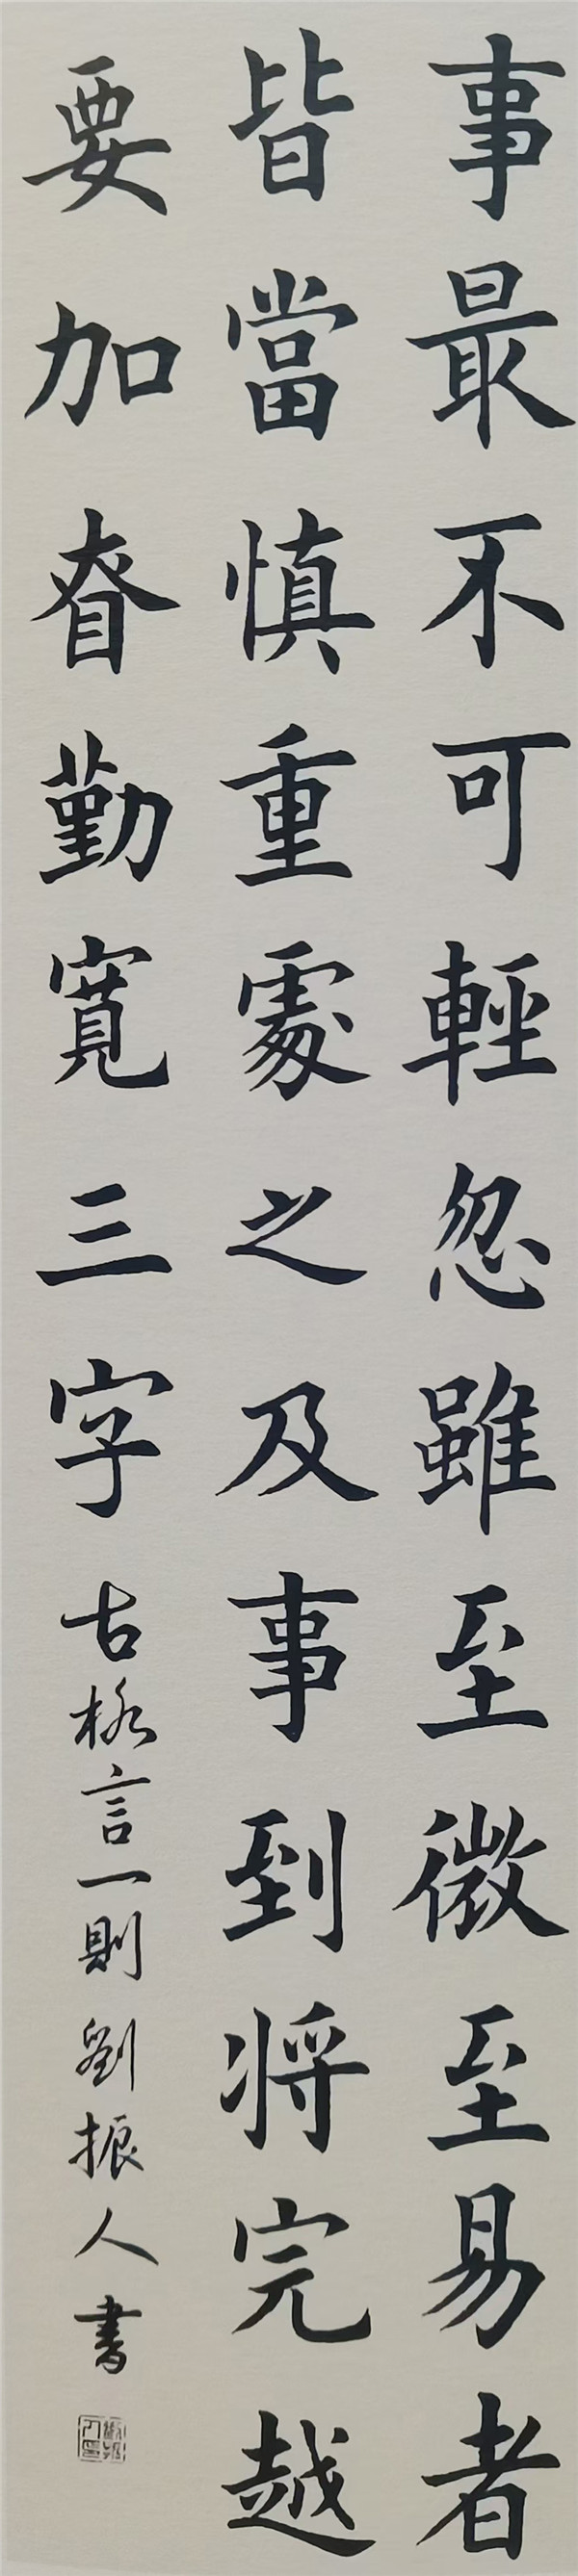 事最不可輕忽雖至微至易者
皆當慎重處之及事到将完越
要加眘勤寬三字
古格言一則劉振人書